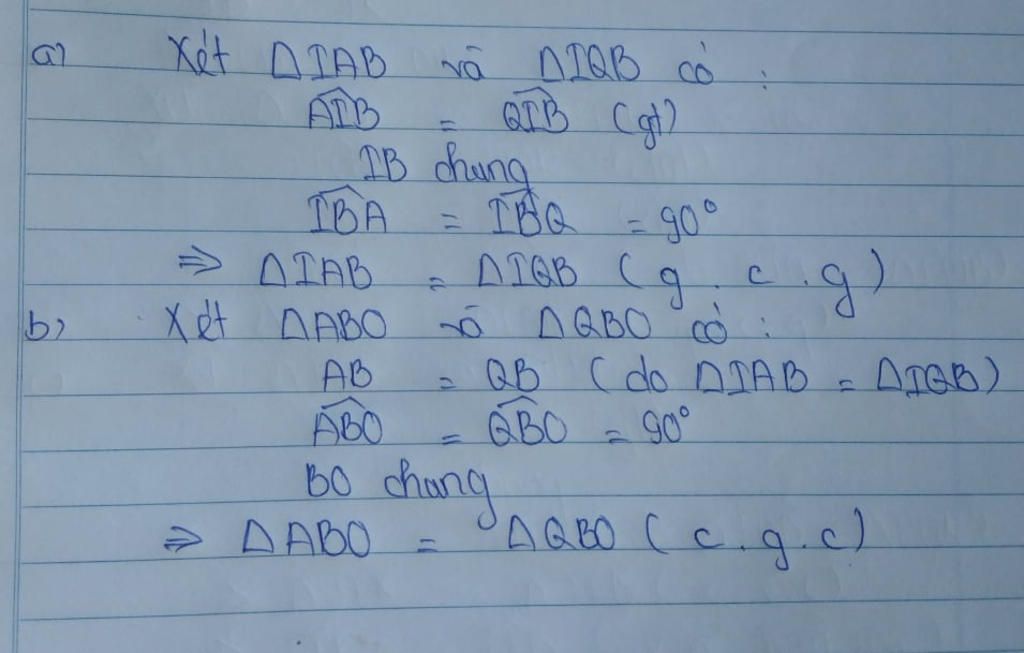 a) Xét ΔIAB và ΔIQB có :
$\widehat{AIB}$ = $\widehat{QIB}$ (gt)
IB chung
$\widehat{IBA}$ = $\widehat{IBQ}$ = 90°
⇒ ΔIAB = ΔIQB ( g . c . g )
b) Xét ΔABO và ΔQBO có :
AB = QB ( do ΔIAB = ΔIQB )
$\widehat{ABO}$ = $\widehat{QBO}$ = 90°
BO chung
⇒ ΔABO = ΔQBO ( c . g . c )